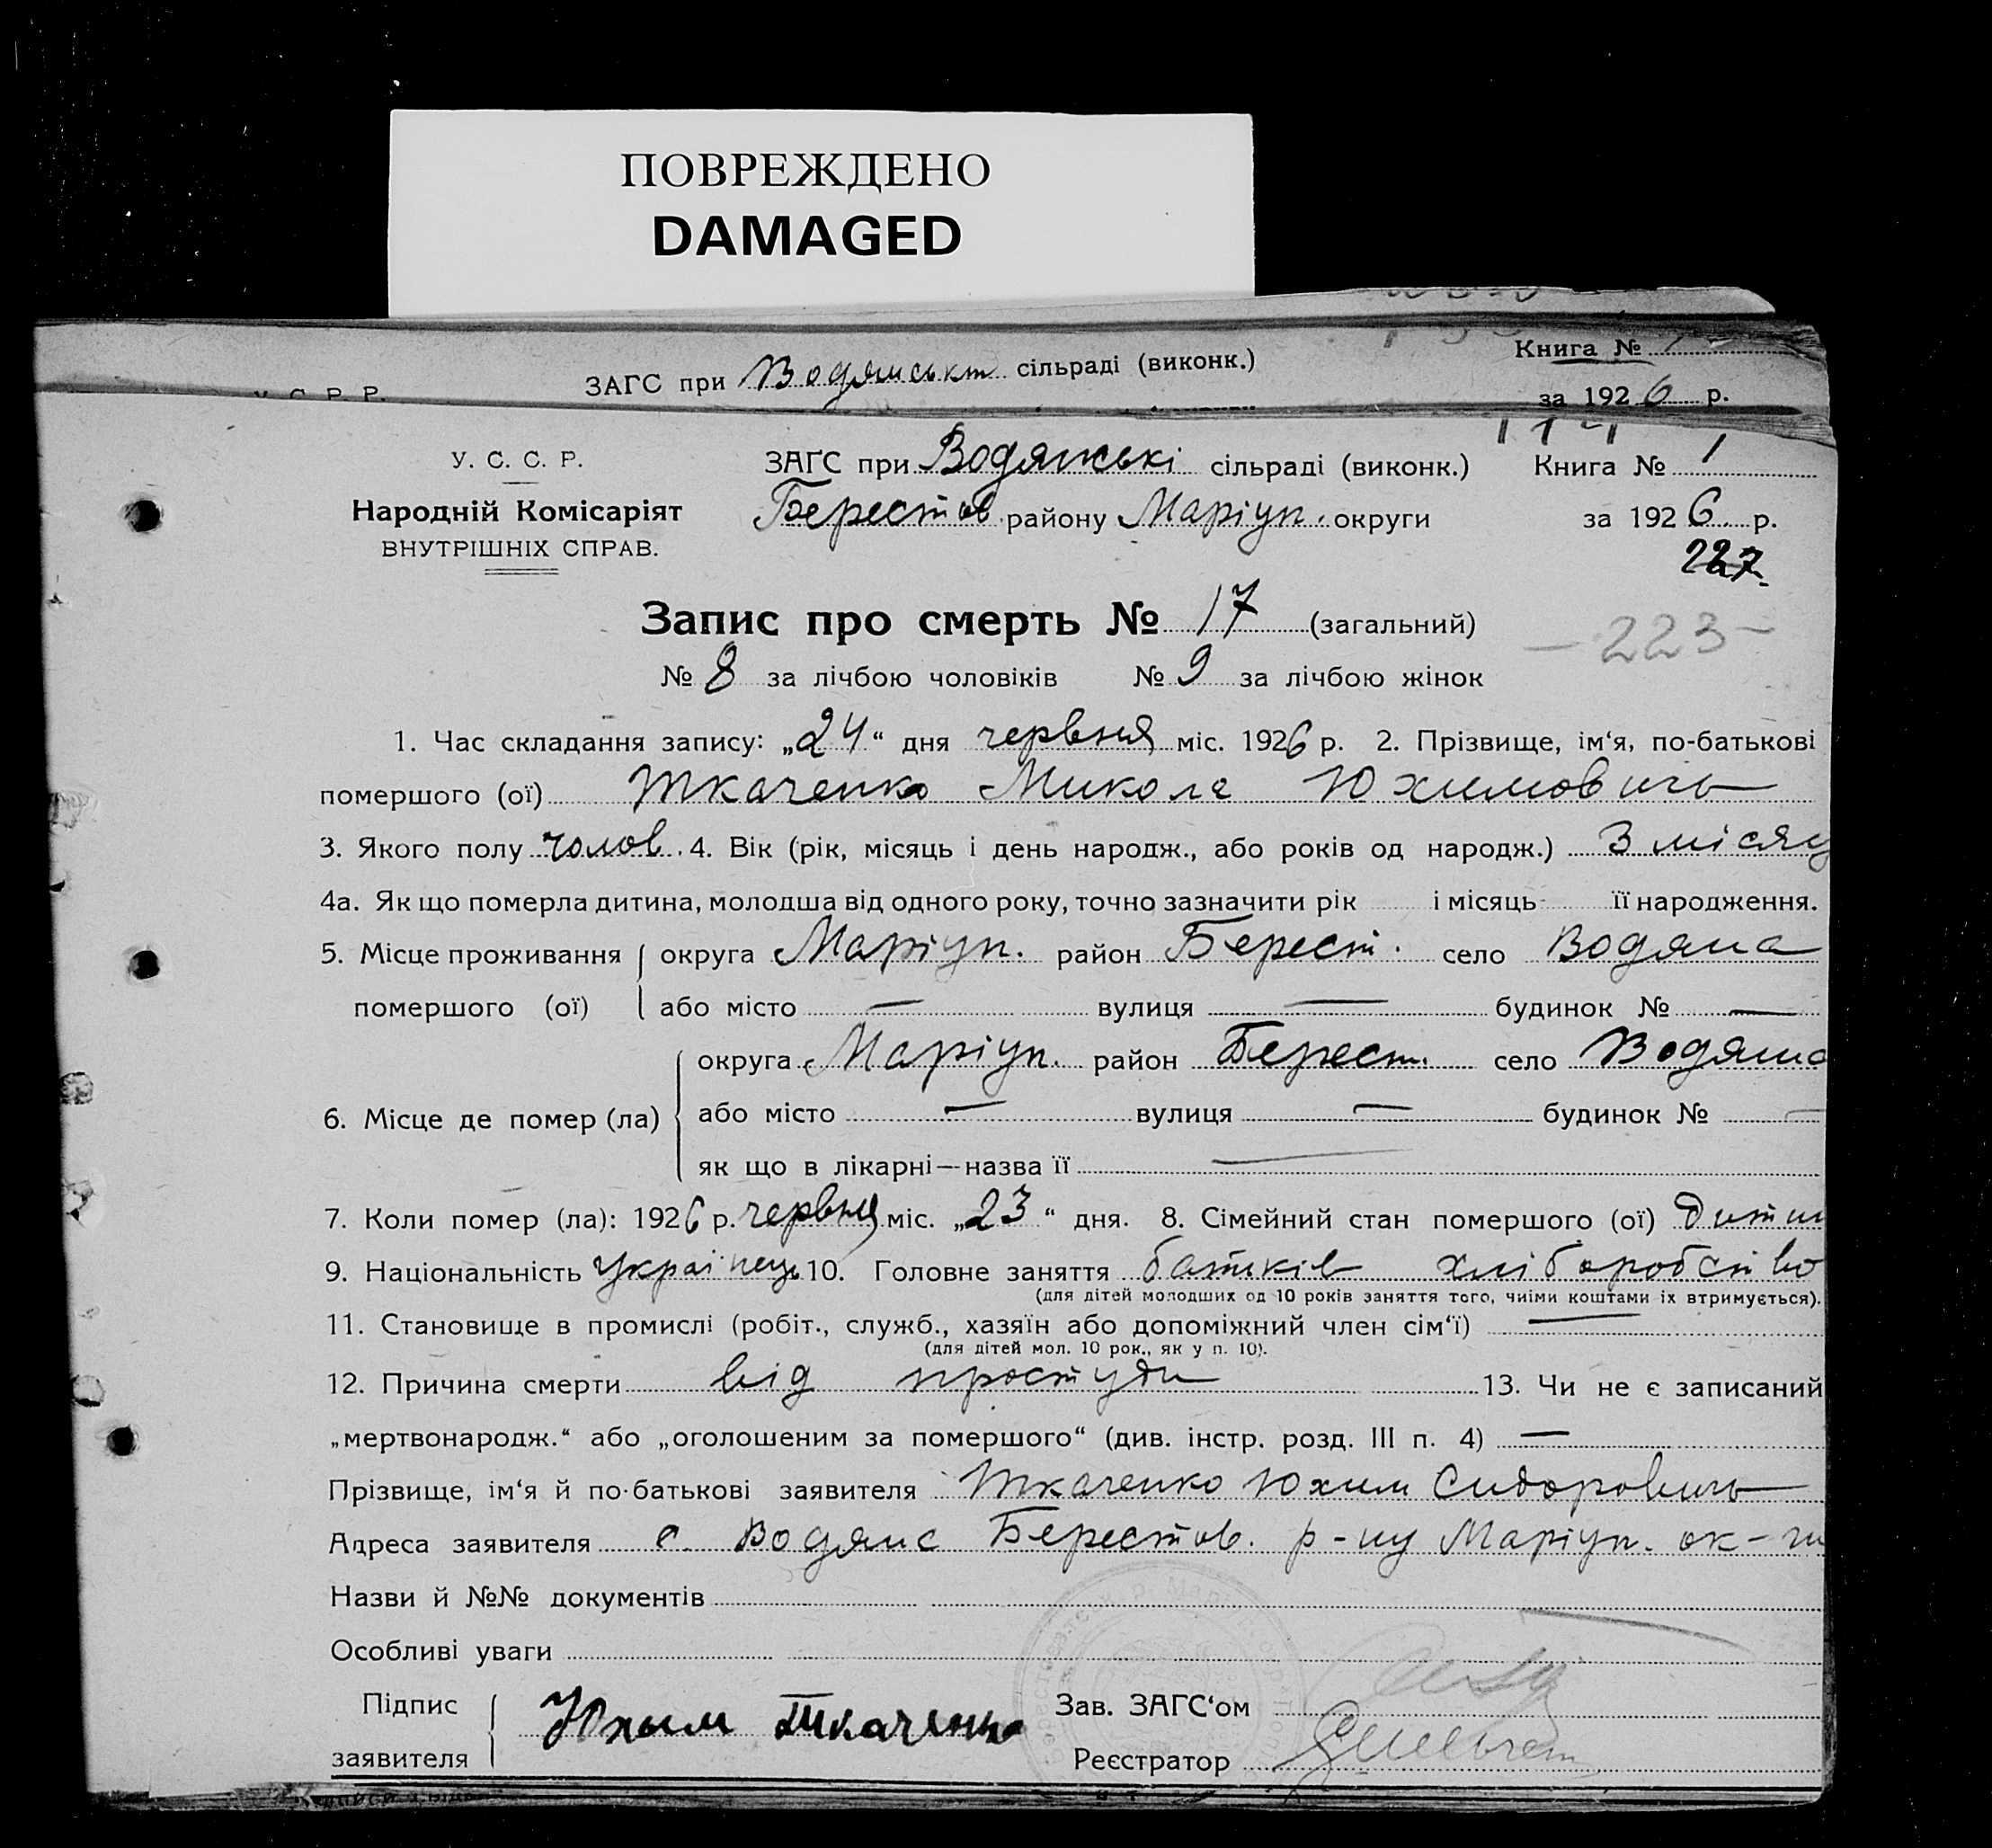 ПОВРЕЖДЕНО
DAMAGED
ЗАГС при Водянськт сільраді (виконк.) Книга №
У. С. Р. Р. за 1926 р.
У. С. С. Р. ЗАГС при Водянські сільраді (виконк.) Книга № 1
Народній Комісаріят Берестов. району Маріуп. округи за 1926 р.
ВНУТРІШНІХ СПРАВ.
227.
Запис про смерть № 17 (загальний)
-223-
№ 8 за лічбою чоловіків № 9 за лічбою жінок
1. Час складання запису: „24“ дня червня міс. 1926 р. 2. Прізвище, ім‘я, по-батькові
помершого (ої) Ткаченко Микола Юхимовичь
3. Якого полу чолов. 4. Вік (рік, місяць і день народж., або років од народж.) 3 місяц
4а. Як що померла дитина, молодша від одного року, точно зазначити рік і місяць її народження.
5. Місце проживання округа Маріуп. район Берест. село Водяна
помершого (ої) або місто — вулиця — будинок № —
округа Маріуп. район Берест. село Водяна
6. Місце де помер (ла) або місто — вулиця — будинок № —
як що в лікарні—назва її —
7. Коли помер (ла): 1926 р. червня міс. „23“ дня. 8. Сімейний стан помершого (ої) дитин
9. Національність Українець 10. Головне заняття батьків хліборобство
(для дітей молодших од 10 років заняття того, чиїми коштами їх втримується).
11. Становище в промислі (робіт., служб., хазяїн або допоміжний член сім‘ї) —
(для дітей мол. 10 рок., як у п. 10).
12. Причина смерти від простуди 13. Чи не є записаний
„мертвонародж.“ або „оголошеним за помершого“ (див. інстр. розд. III п. 4) —
Прізвище, ім‘я й по-батькові заявителя Ткаченко Юхим Сидоровичь
Адреса заявителя с. Водяна Берестов. р-ну Маріуп. ок-ги
Назви й №№ документів
Особливі уваги
Підпис Юхым Ткаченко Зав. ЗАГС‘ом
заявителя Реєстратор